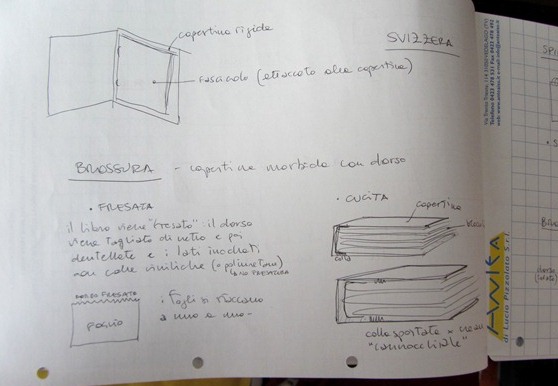 copertina rigida
SVIZZERA
fascicolo (attaccato alla copertina)
BROSSURA - copertina morbida con dorso
• FRESATA
il libro viene "fresato": il dorso
viene tagliato di netto e poi
dentellato e i lati inchiodati
con colle viniliche (o poliuretano)
FRESATURA
DORSO FRESATO
FOGLIO
i fogli si staccano
a uno a uno-
• CUCITA
copertina
blocco
colla
colla spostata x creare
"cannocchiale"
ANITA
di Lucio Pizzolato S.r.l.